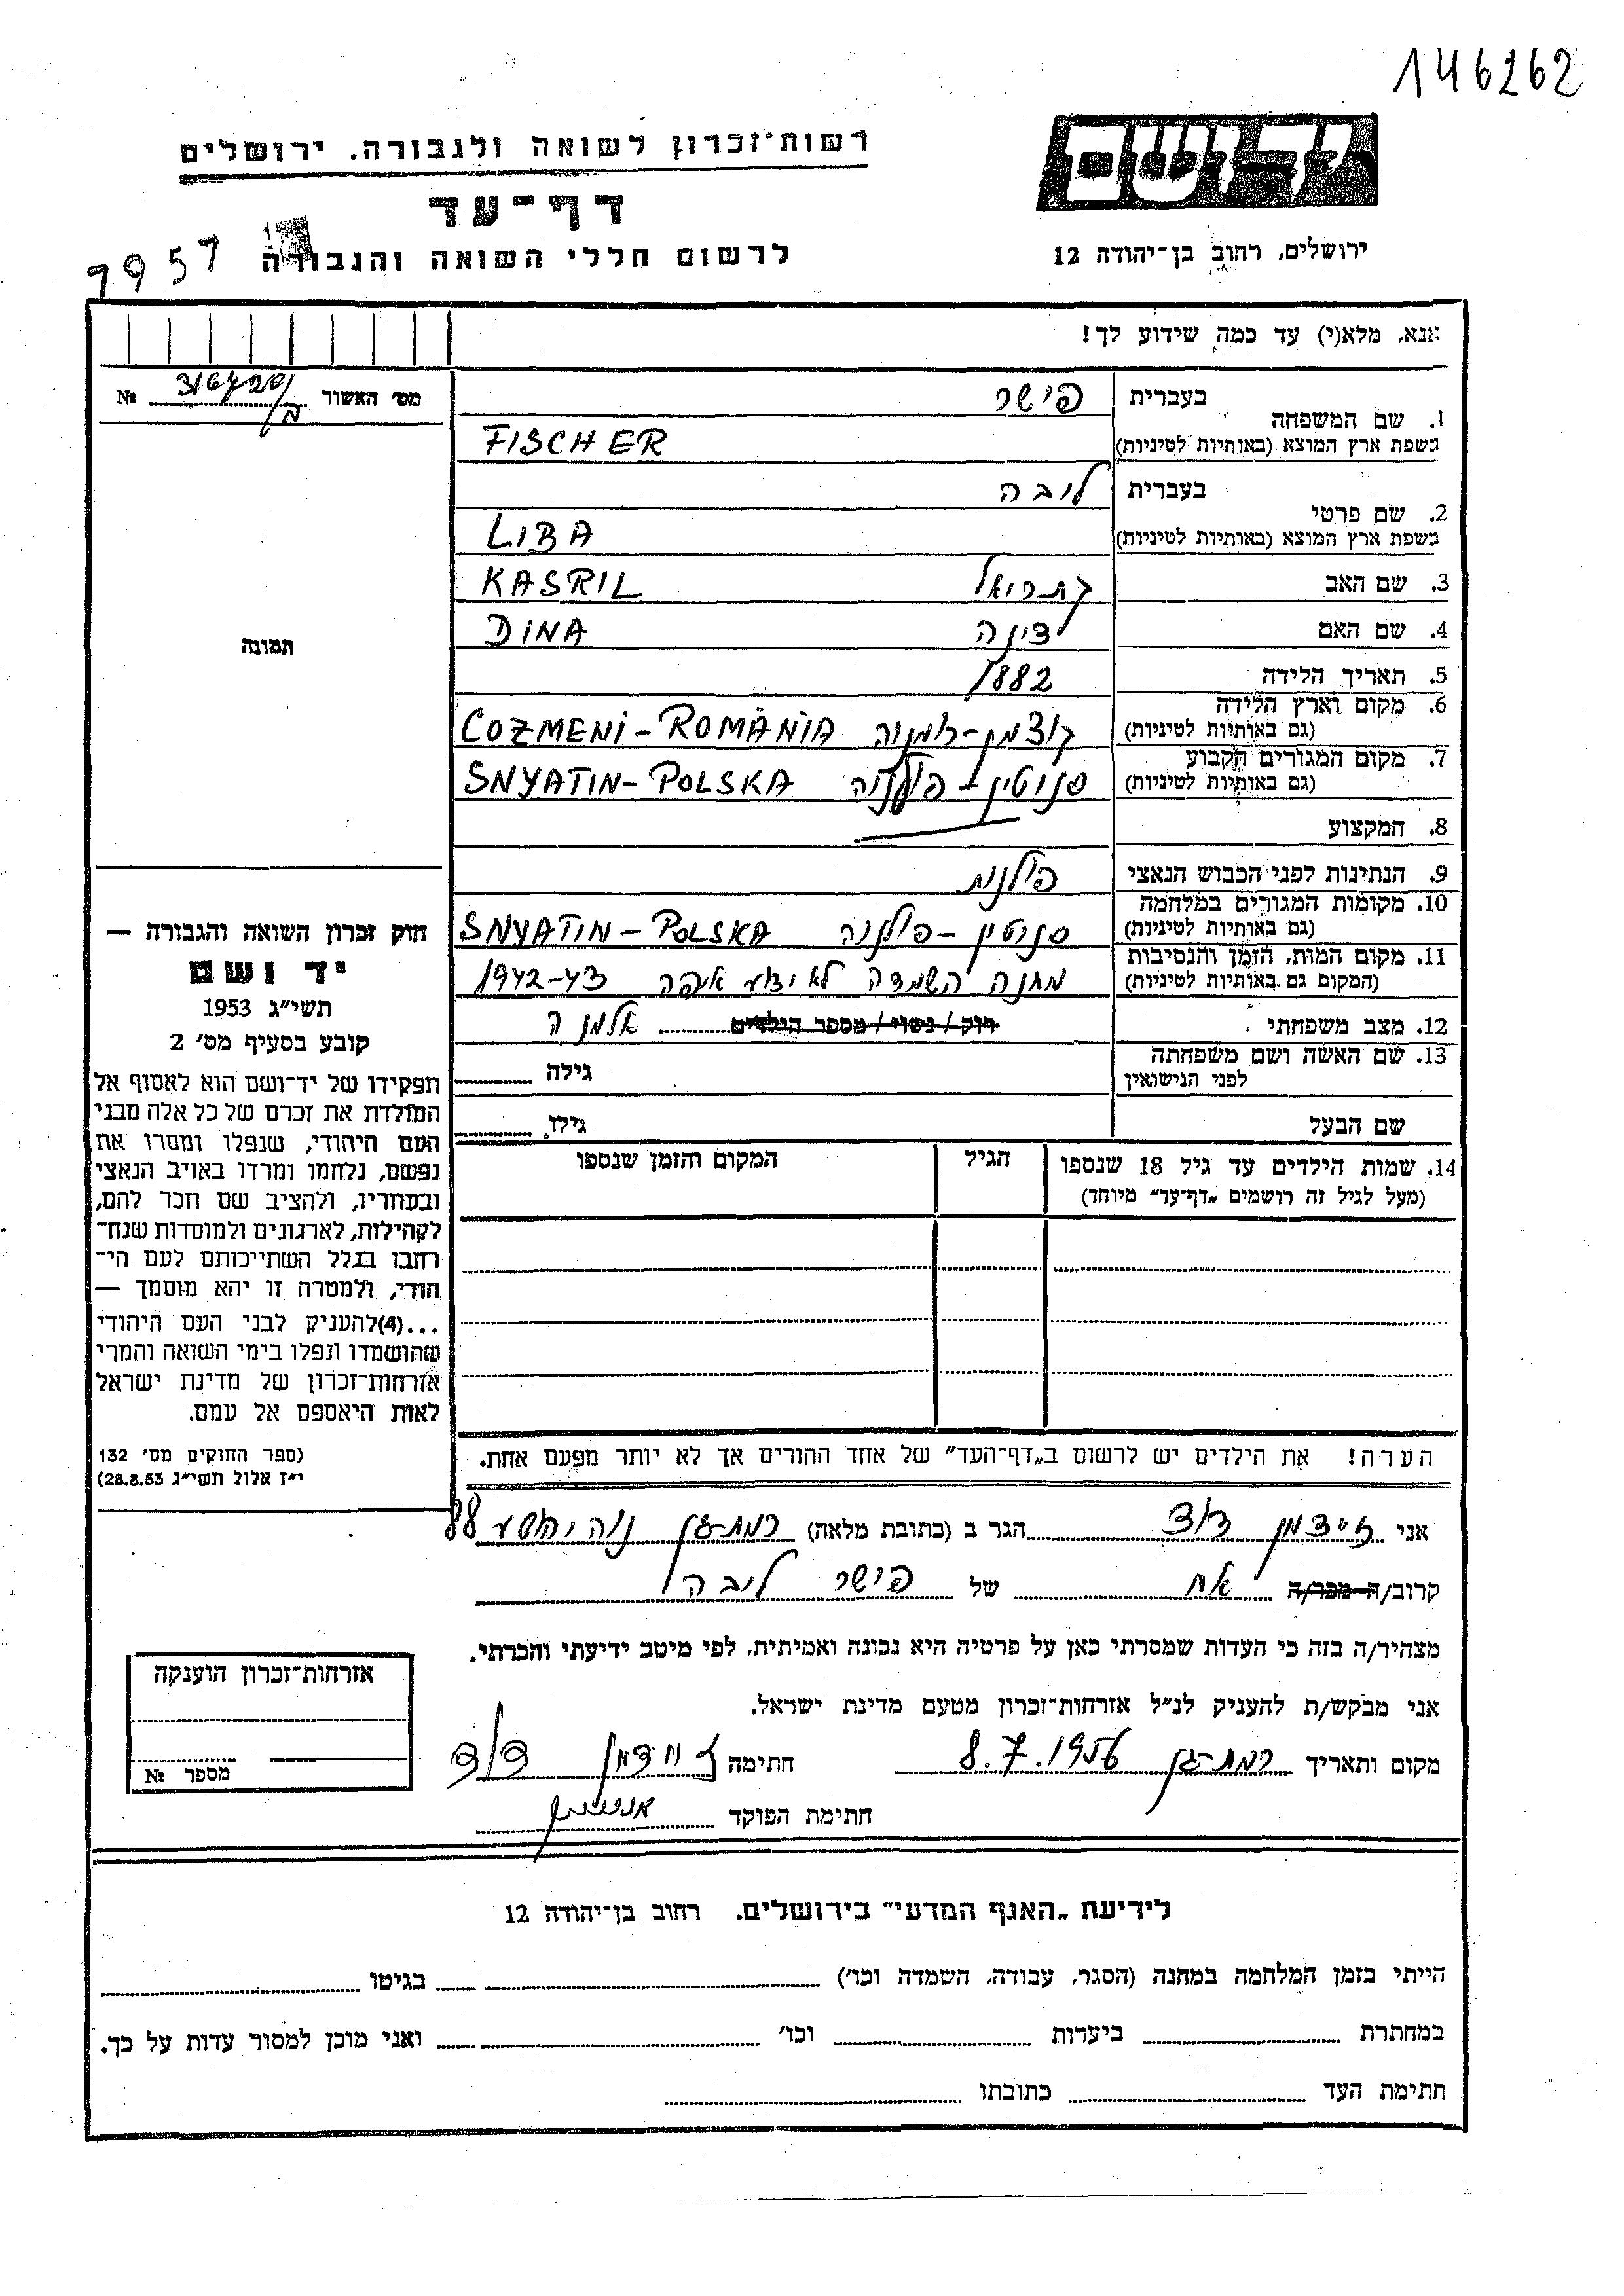 146262
יד ושם
רשות־זכרון לשואה ולגבורה, ירושלים
דף־עד
לרשום חללי השואה והגבורה
7957
ירושלים, רחוב בן־יהודה 12
אנא, מלא(י) עד כמה שידוע לך!
מס׳ האשור №
1. שם המשפחה בעברית פישר
בשפת ארץ המוצא (באותיות לטיניות) FISCHER
2. שם פרטי בעברית ליבה
בשפת ארץ המוצא (באותיות לטיניות) LIBA
3. שם האב כתריאל KASRIL
4. שם האם דינה DINA
5. תאריך הלידה 1882
6. מקום וארץ הלידה
(גם באותיות לטיניות) קוצמן-רומניה COZMENI-ROMÂNIA
7. מקום המגורים הקבוע
(גם באותיות לטיניות) סניטין - פולניה SNYATIN-POLSKA
8. המקצוע
9. הנתינות לפני הכבוש הנאצי פולנית
10. מקומות המגורים במלחמה
(גם באותיות לטיניות) סניטין - פולניה SNYATIN-POLSKA
11. מקום המות, הזמן והנסיבות
(המקום גם באותיות לטיניות) מחנה השמדה לא ידוע איפה 1942-43
12. מצב משפחתי רוק / נשוי / מספר הילדים אלמנה
13. שם האשה ושם משפחתה
לפני הנישואין גילה
שם הבעל גילו
14. שמות הילדים עד גיל 18 שנספו הגיל המקום והזמן שנספו
(מעל לגיל זה רושמים „דף־עד״ מיוחד)
הערה! את הילדים יש לרשום ב„דף־העד״ של אחד ההורים אך לא יותר מפעם אחת.
תמונה
חוק זכרון השואה והגבורה —
יד ושם
תשי״ג 1953
קובע בסעיף מס׳ 2
תפקידו של יד־ושם הוא לאסוף אל
המולדת את זכרם של כל אלה מבני
העם היהודי, שנפלו ומסרו את
נפשם, נלחמו ומרדו באויב הנאצי
ובעוזריו, ולהציב שם וזכר להם,
לקהילות, לארגונים ולמוסדות שנח־
רבו בגלל השתייכותם לעם הי־
הודי, ולמטרה זו יהא מוסמך —
...(4)להעניק לבני העם היהודי
שהושמדו ונפלו בימי השואה והמרי
אזרחות־זכרון של מדינת ישראל
לאות היאספם אל עמם.
(ספר החוקים מס׳ 132
י״ז אלול תשי״ג 28.8.53)
אני זיידמן דוד הגר ב (כתובת מלאה) רמת-גן נוה יהושע 88
קרוב/ה מכר/ה אח של פישר ליבה
מצהיר/ה בזה כי העדות שמסרתי כאן על פרטיה היא נכונה ואמיתית, לפי מיטב ידיעתי והכרתי.
אני מבקש/ת להעניק לנ״ל אזרחות־זכרון מטעם מדינת ישראל.
מקום ותאריך רמת-גן 8.7.1956 חתימה זיידמן דוד
חתימת הפוקד
אזרחות־זכרון הוענקה
מספר №
לידיעת „האגף המדעי״ בירושלים, רחוב בן־יהודה 12
הייתי בזמן המלחמה במחנה (הסגר, עבודה, השמדה וכו׳) בגיטו
במחתרת ביערות וכו׳ ואני מוכן למסור עדות על כך.
חתימת העד כתובתו